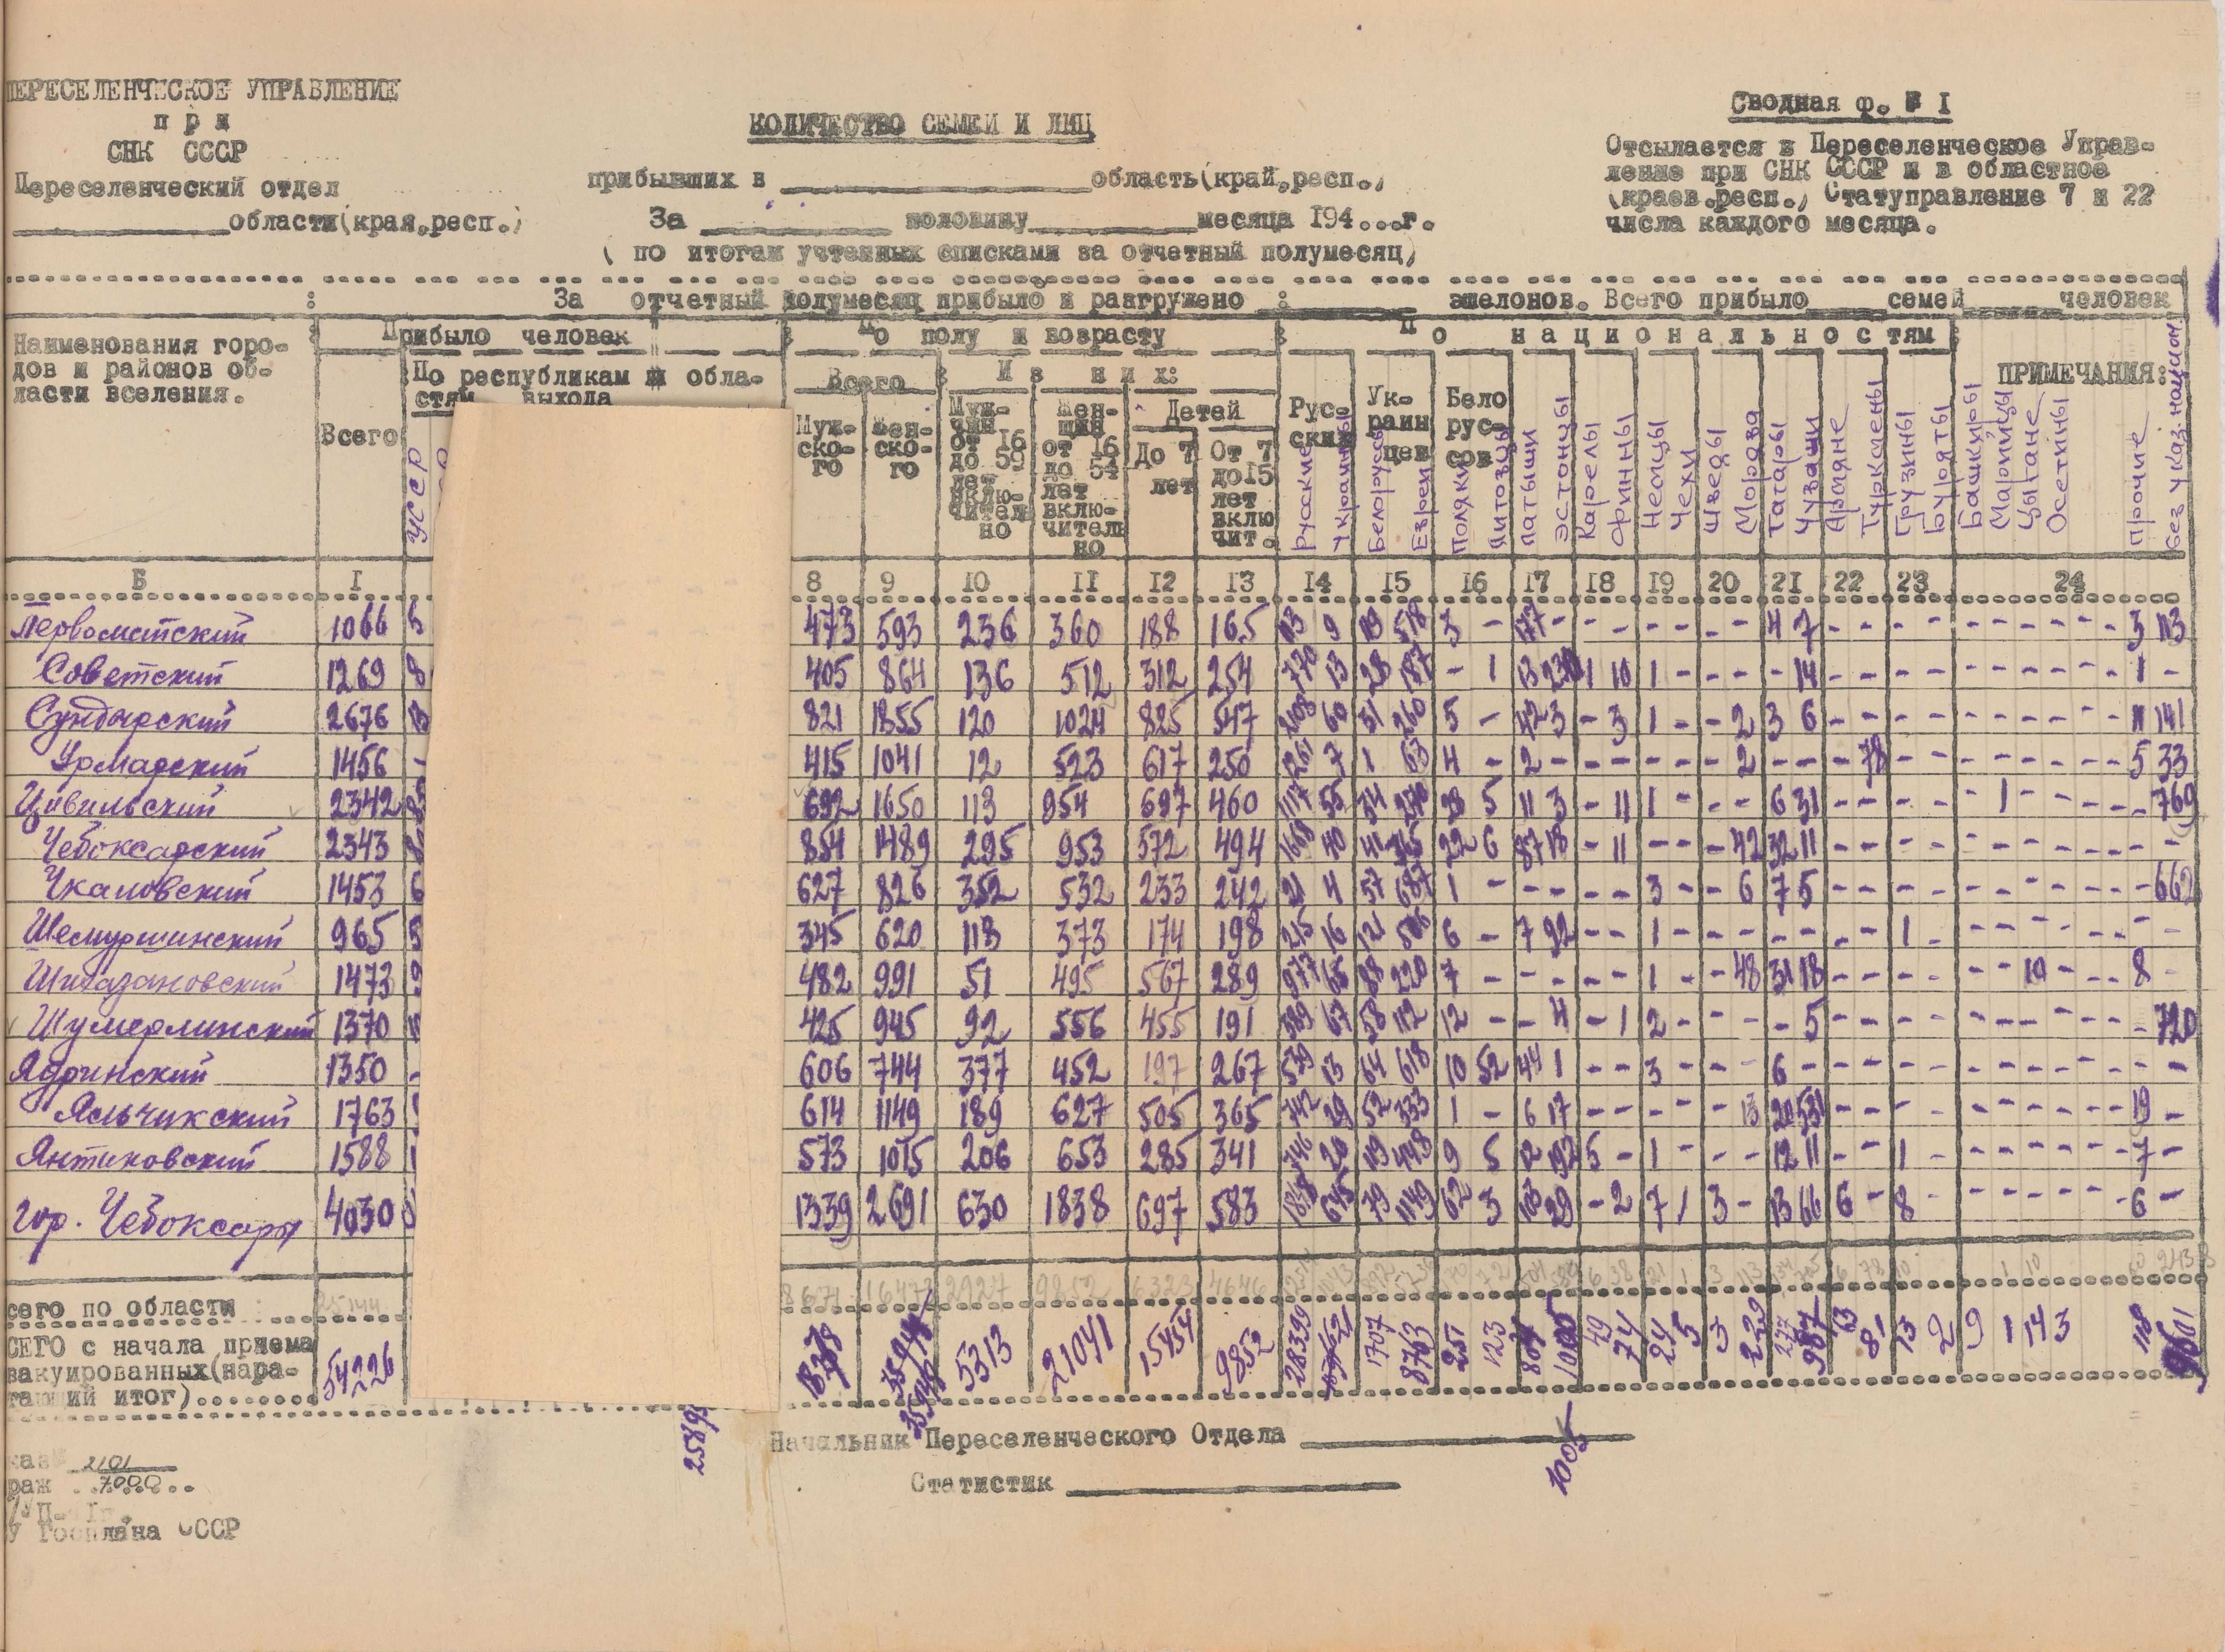 ПЕРЕСЕЛЕНЧЕСКОЕ УПРАВЛЕНИЕ
при
СНК СССР
Переселенческий отдел
области(края,респ.)
КОЛИЧЕСТВО СЕМЕЙ И ЛИЦ
прибывших в область(край,респ.)
За половину месяца 194...г.
( по итогам учтенных списками за отчетный полумесяц)
Сводная ф. № I
Отсылается в Переселенческое Управ-
ление при СНК СССР и в областное
(краев.респ.) Статуправление 7 и 22
числа каждого месяца.
За отчетный полумесяц прибыло и разгружено : эшелонов. Всего прибыло семей человек
Наименования горо-
дов и районов об-
ласти вселения.
Прибыло человек
Всего
По республикам и обла-
стям выхода
УССР
По полу и возрасту
Всего
Муж-
ско-
го
Жен-
ско-
го
Из них:
Муж-
чин
от 16
до 59
лет
включ-
читель
но
Жен-
щин
от 16
до 54
лет
вклю-
читель
но
Детей
До 7
лет
От 7
до 15
лет
вклю
чит.
По национальностям
Рус-
ских
Ук-
раин
цев
Бело
рус-
сов
Русские
Украинцы
Белоруссы
Евреи
Поляки
Литовцы
Латыши
Эстонцы
Карелы
Финны
Немцы
Чехи
Шведы
Мордва
Татары
Чуваши
Армяне
Туркмены
Грузины
Буряты
Башкиры
Марийцы
Цыгане
Осетины
Прочие
без указ. национ.
ПРИМЕЧАНИЯ:
Б I 8 9 10 11 12 13 14 15 16 17 18 19 20 21 22 23 24
Первомайский 1066 5 473 593 236 360 188 165 9 3 - - - - - - - - 4 7 - - - - - - - - 3 113
Советский 1269 8 405 864 136 512 312 254 770 13 28 187 - 1 13 1 10 1 - - - - 14 - - - - - - - - 1 -
Сундырский 2676 821 1855 120 1024 825 547 2108 60 31 260 5 - 42 3 - 3 1 - - 2 3 6 - - - - - - - - 141
Урмарский 1456 415 1041 12 523 617 250 1261 7 1 63 4 - 2 - - - - - - 2 - - - 78 - - - - - - 5 33
Цивильский 2342 692 1650 113 954 697 460 1117 55 34 270 28 5 11 3 - 11 1 - - - 6 31 - - - - - 1 - - - 769
Чебоксарский 2343 854 1489 295 953 572 494 1668 40 41 22 6 87 18 - 11 - - - 42 32 11 - - - - - - - - - -
Чкаловский 1453 6 627 826 352 532 233 242 21 4 57 687 1 - - - - - 3 - - 6 7 5 - - - - - - - - - 662
Шемуршинский 965 345 620 113 373 174 198 215 16 121 506 6 - 7 92 - - 1 - - - - - - - 1 - - - - - - -
Шихазановский 1473 9 482 991 51 495 567 289 977 65 88 220 7 - - - - - 1 - - 48 31 18 - - - - - - 10 - 8 -
Шумерлинский 1370 425 945 92 556 455 191 389 67 58 112 12 - - 4 - 1 2 - - - - 5 - - - - - - - - - 720
Ядринский 1350 - 606 744 377 452 197 267 539 13 64 618 10 52 44 1 - - 3 - - - 6 - - - - - - - - - - -
Яльчикский 1763 614 1149 189 627 505 365 742 29 52 333 1 - 6 17 - - - - - 13 20 531 - - - - - - - - 19 -
Янтиковский 1588 573 1015 206 653 285 341 746 20 119 448 9 5 12 192 5 - 1 - - - 12 11 - - 1 - - - - - 7 -
гор. Чебоксары 4030 1339 2691 630 1838 697 583 79 1149 62 3 103 29 - 2 7 1 3 - 13 66 6 - 8 - - - - - 6 -
сего по области 25144 8671 16473 2927 9852 6323 4646
СЕГО с начала приема
вакуированных(нара-
тающий итог)
54226 5313 21041 15454 9852 28399 1707 8763 251 123 1005 49 74 24 5 3 229 277 987 13 81 13 2 9 1 14 3 118
Начальник Переселенческого Отдела
Статистик
1005
каз 2101
раж 7000
У Госплана СССР